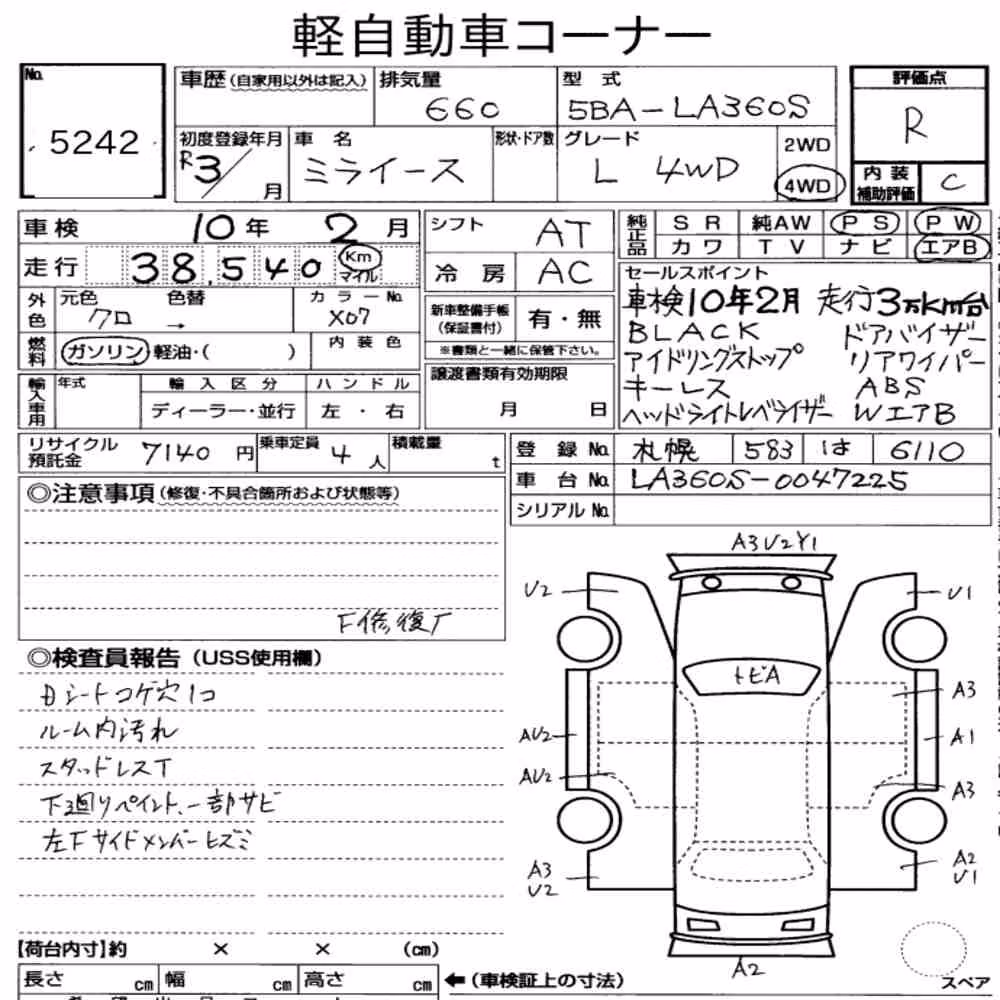 軽自動車コーナー
No. 5242
車歴(自家用以外は記入) 排気量 660 型式 5BA-LA360S 評価点 R
初度登録年月 R3/ 月 車名 ミライース 形状・ドア数 グレード L 4WD 2WD 4WD
内装補助評価 C
車検 10年 2月 シフト AT 純正品 SR 純AW PS PW
カワ TV ナビ エアB
走行 38,540 Km マイル 冷房 AC
セールスポイント
外色 元色 クロ 色替 → カラーNo. X07
新車整備手帳(保証書付) 有・無
※書類と一緒に保管下さい。
車検10年2月 走行3万km台
BLACK ドアバイザー
アイドリングストップ リアワイパー
キーレス ABS
ヘッドライトレベライザー WエアB
燃料 ガソリン・軽油・( ) 内装色
輸入車用 年式 輸入区分 ハンドル
ディーラー・並行 左・右
譲渡書類有効期限
月 日
リサイクル預託金 7140円 乗車定員 4人 積載量 t
登録No. 札幌 583 は 6110
車台No. LA360S-0047225
シリアルNo.
◎注意事項(修復・不具合箇所および状態等)
F修復厂
◎検査員報告(USS使用欄)
Dシートコゲ穴1コ
ルーム内汚れ
スタッドレスT
下廻りペイント、一部サビ
左Fサイドメンバーヒズミ
A3U2Y1
U2 U1
トビA
A3
AU2 A1
AU2 A3
A3 U2 A2 U1
A2
スペア
【荷台内寸】約 × × (cm)
長さ cm 幅 cm 高さ cm ←(車検証上の寸法)